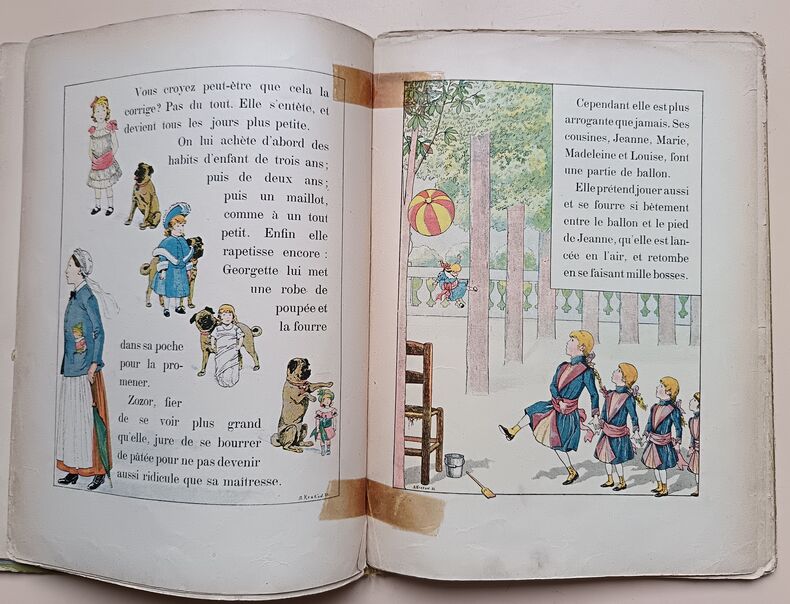 Vous croyez peut-être que cela la
corrige? Pas du tout. Elle s'entête, et
devient tous les jours plus petite.
On lui achète d'abord des
habits d'enfant de trois ans;
puis de deux ans;
puis un maillot,
comme à un tout
petit. Enfin elle
rapetisse encore :
Georgette lui met
une robe de
poupée et
la fourre
dans sa poche
pour la pro-
mener.
Zozor, fier
de se voir plus grand
qu'elle, jure de se bourrer
de pâtée pour ne pas devenir
aussi ridicule que sa maîtresse.
Cependant elle est plus
arrogante que jamais. Ses
cousines, Jeanne, Marie,
Madeleine et Louise, font
une partie de ballon.
Elle prétend jouer aussi
et se fourre si bêtement
entre le ballon et le pied
de Jeanne, qu'elle est lan-
cée en l'air, et retombe
en se faisant mille bosses.